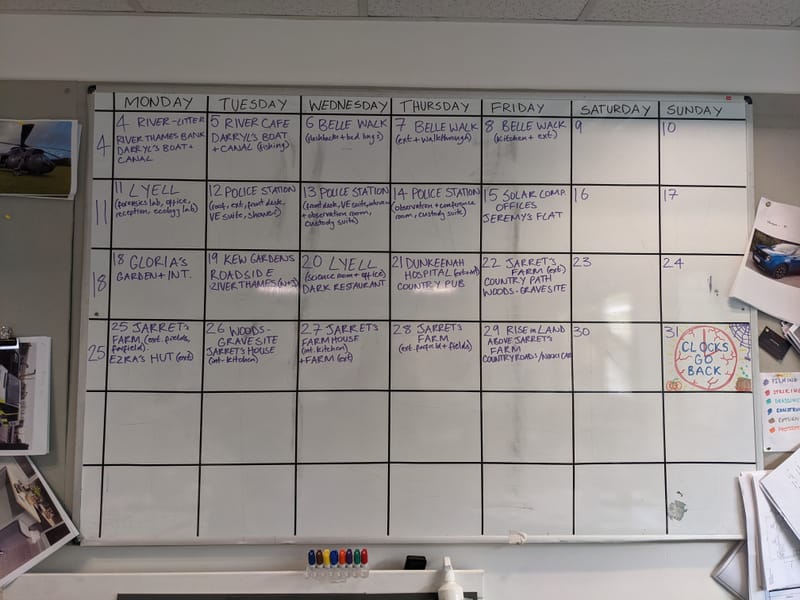 MONDAY TUESDAY WEDNESDAY THURSDAY FRIDAY SATURDAY SUNDAY
4
4 RIVER-LITTER
RIVER THAMES BANK
DARRYL'S BOAT +
CANAL
5 RIVER CAFE
DARRYL'S BOAT
+ CANAL (fishing)
6 BELLE WALK
(flashbacks + bed bugs)
7 BELLE WALK
(ext + walkthrough)
8 BELLE WALK
(kitchen + ext)
9
10
11
11 LYELL
(forensics lab, office,
reception, ecology lab)
12 POLICE STATION
(roof, ext, front desk,
VE suite, shower)
13 POLICE STATION
(front desk, VE suite,
+ observation room,
custody suite)
14 POLICE STATION
(observation + conference
room, custody suite)
15 SOLAR COMP.
OFFICES
JEREMY'S FLAT
16
17
18
18 GLORIA'S
GARDEN + INT.
19 KEW GARDENS
ROADSIDE
RIVER THAMES
20 LYELL
(science room + office)
DARK RESTAURANT
21 DUNKEENAH
HOSPITAL
COUNTRY PUB
22 JARRET'S
FARM (ext)
COUNTRY PATH
WOODS-GRAVESITE
23
24
25
25 JARRET'S
FARM (ext. fields,
firefield).
EZRA'S HUT (ext)
26 WOODS-
GRAVESITE
JARRET'S HOUSE
(int-kitchen)
27 JARRET'S
FARMHOUSE
(int. kitchen)
+ FARM (ext)
28 JARRET'S
FARM
(ext. firefield + fields)
29 RISE IN LAND
ABOVE JARRET'S
FARM
COUNTRY ROADS/
30
31
CLOCKS
GO
BACK